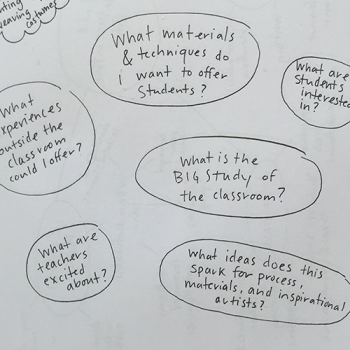 weaving
costumes
What materials
& techniques do
I want to offer
Students?
What are
Students
interested
in?
What
experiences
outside the
classroom
could I offer?
What is the
BIG Study of
the classroom?
What are
teachers
excited
about?
What ideas does this
spark for process,
materials, and inspirational
artists?